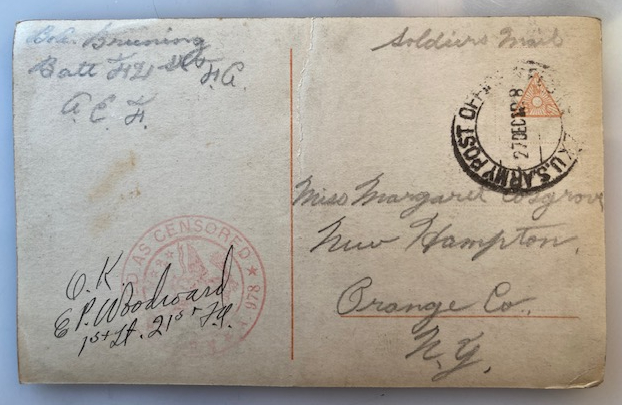 Bruning
Batt F 21st F.A.
A. E. F.
Soldiers Mail
U.S. ARMY POST OFFICE
27 DEC
Miss Margaret Cosgrove
New Hampton,
Orange Co.
N.Y.
AS CENSORED
978
O.K.
E P. Woodward
1st Lt. 21st F.A.